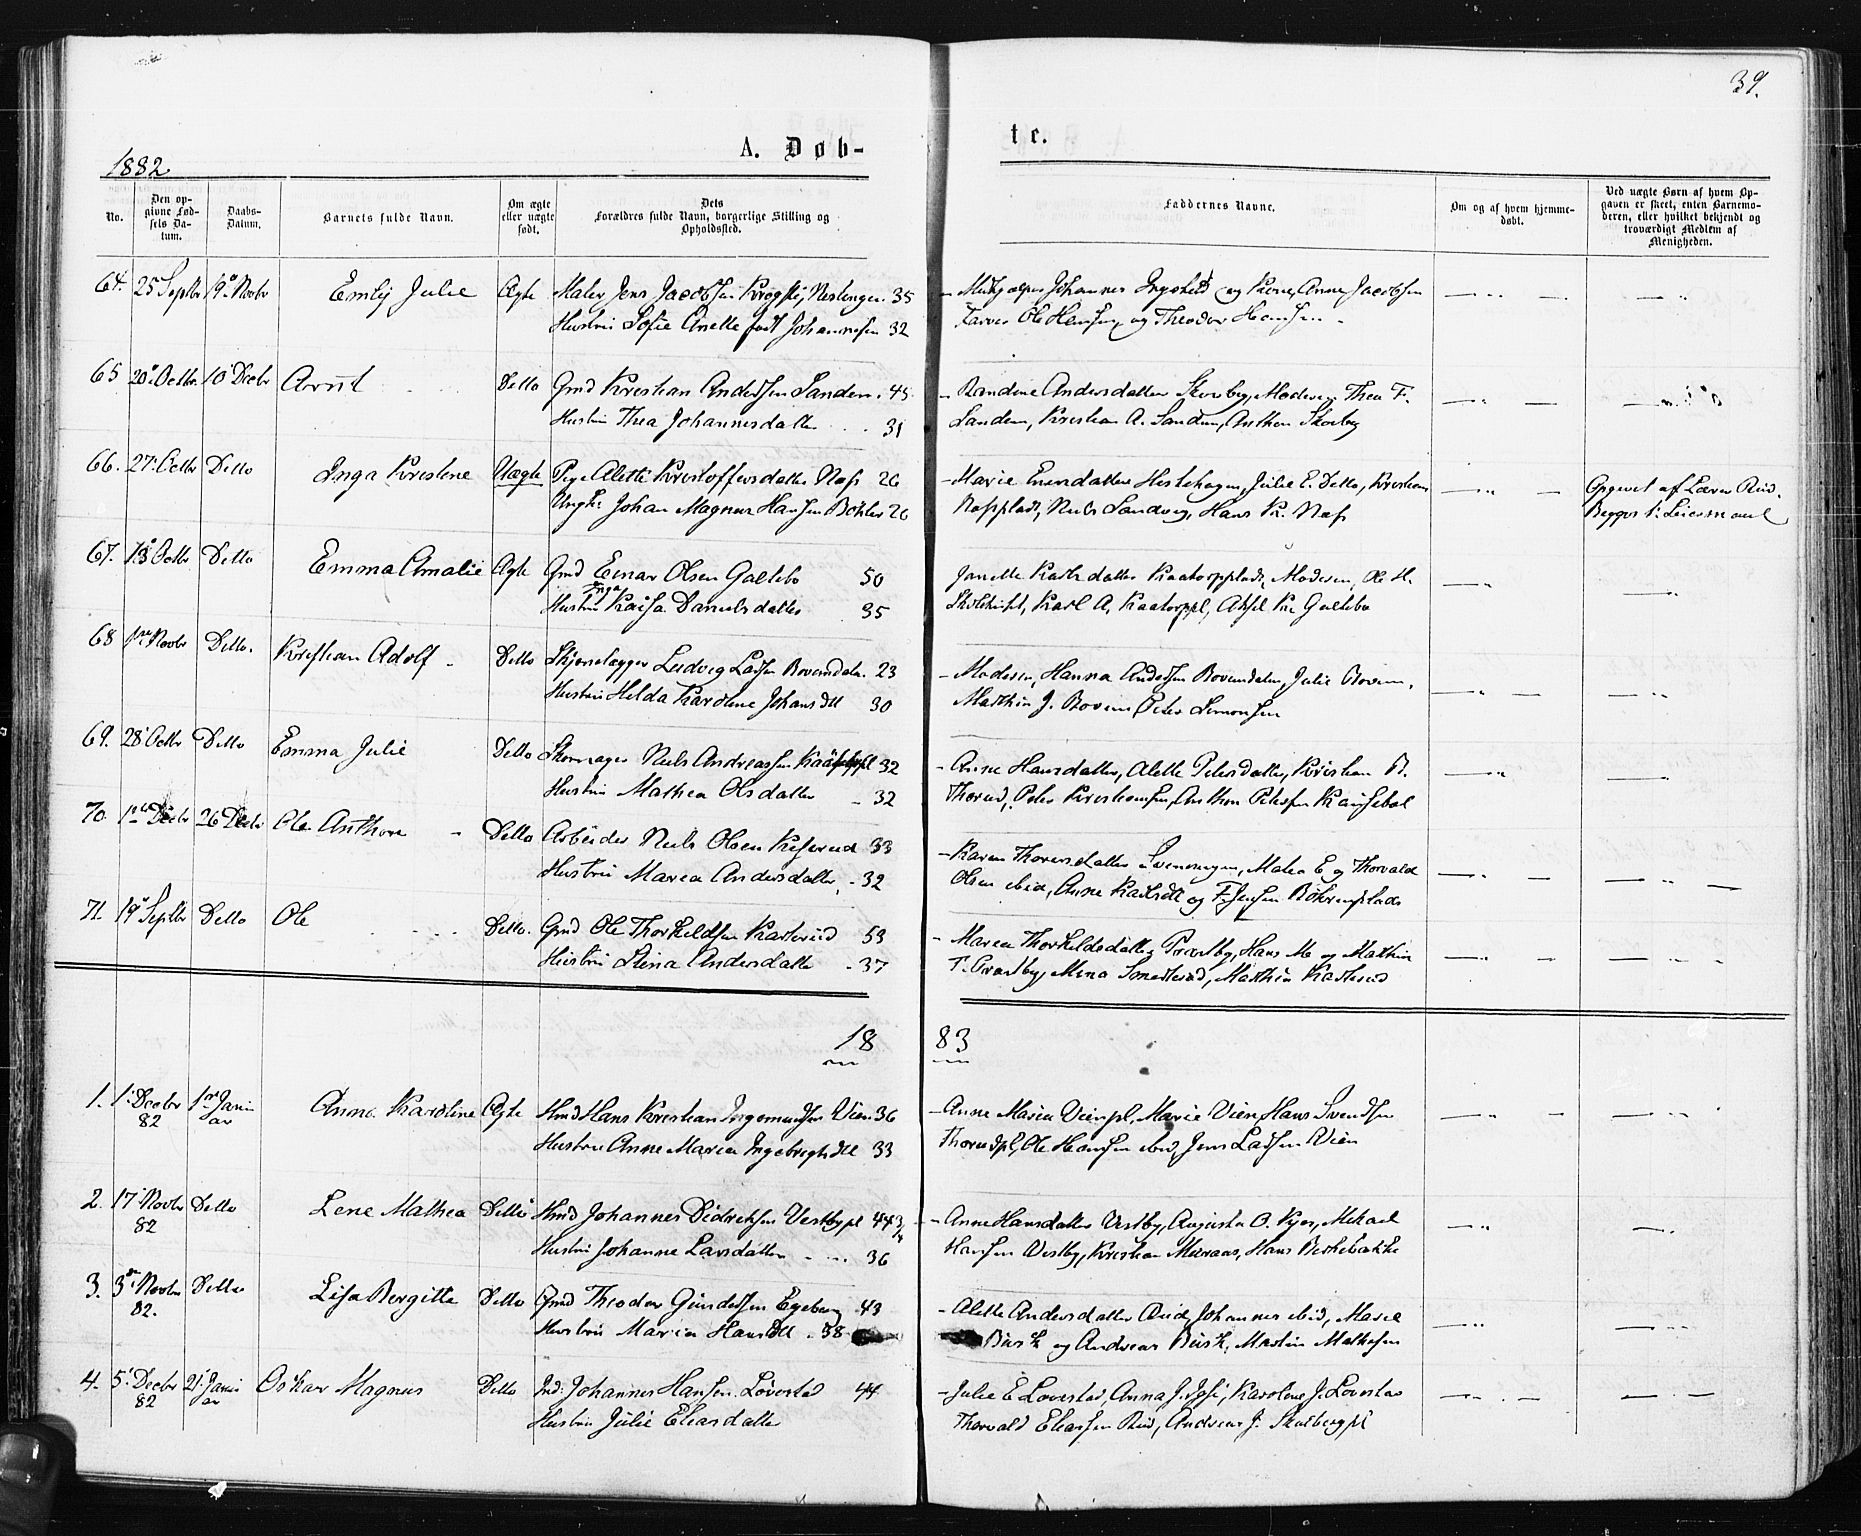 39.
A. Døb-
te.
1882
No.
Den op-
givne Fød-
sels Da-
tum.
Daabs-
Datum.
Barnets fulde Navn.
Om ægte
eller uægte
født.
Dets
Forældres fulde Navn, borgerlige Stilling og
Opholdssted.
Faddernes Navne.
Om og af hvem hjemme-
døbt.
Ved uægte Børn af hvem Op-
gaven er skeet, enten Barnemo-
deren, eller hvilket bekjendt og
troværdigt Medlem af
Menigheden.
64. 25 Septbr 19 Novbr Emily Julie Ægte Maler Jens Jacobsen 35
Hustru Sofie Anette født Johannesen 32
Johannes og Kone, Anne Jacobsen
Farver Ole Hansen og Theodor Hansen
65 20 Octbr. 10 Decbr Arnt Detto Gmd Kristian Andersen Sanden. 45
Hustru Thea Johannesdatter 31
Randine Andersdatter Skovby, Moderen Thea F.
Sanden, Kristian A. Sanden, Anthon Skovby
66. 27 Octbr Detto Inga Kristine Uægte Pige Alette Kristoffersdatter Næss 26
Ungk. Johan Magnus Hansen Bøhler 26
Marie Enersdatter Hestehagen, Julie E. Detto, Kristian
Næsplads, Niels Sandvig, Hans Kr. Næss
Opgivet af Lærer Rud.
Begges 1. Leiermaal
67. 13 Octbr Detto Emma Amalie Ægte Gmd Einar Olsen Galtebo 50
Inga
Hustru Kaisa Danielsdatter 35
Janette Karlsdatter Kaatorpplads, Moderen, Ole H.
Karl A. Kaatorppl, Aksel Kr Galtebo
68 Novbr Detto. Kristian Adolf Detto Ludvig Larsen Bovimdalen. 23
Hustru Hilda Karoline Johansdtt 30
Moderen, Hanna Andersen Bovimdalen, Julie Bovim,
Mathia J. Bovim, Peter Simonsen
69. 28 Octbr Detto Emma Julie Detto Skomager Niels Andreassen 32
Hustru Mathea Olsdatter 32
Anne Hansdatter, Alette Petersdatter, Kristian B.
Thorud, Peter Kristiansen, Anthon Petersen
70 1 Decbr 26 Decbr Ole Anthon Detto Arbeider Niels Olsen 33
Hustru Marea Andersdatter 32
Karen Thoresdatter Svenneyen, Malea E og Thorvald
Olsen ibid, Anne Karlsdtt og F. Jensen
71. 19 Septbr Detto Ole Detto. Gmd Ole Thorkildsen Karterud 53
Hustru Stina Andersdatter 37
Maren Thorkildsdatter Prestby, Hans M og Mathia
T. Prestby, Mina Smedsrud, Mathia Karterud
18 83
1. 1 Decbr 82 1 Januar Anna Karoline Ægte Hmd Hans Kristian Ingemundsen Vien 36
Hustru Anne Marea Ingebrigtsdtt 33
Anne Marea Vienpl, Marie Vien, Hans Svendsen
Thorudpl, Ole Hansen ibid, Jens Larsen Vien
2. 17 Novbr 82 Detto Lene Mathea Detto Hmd Johannes Didriksen Vestbypl 44 3/4
Hustru Johanne Larsdatter 36
Anne Hansdatter Vestby, Augusta O. Kjos, Mikael
Hansen Vestby, Kristian Maraas, Hans Berkebakke
3. 3 Novbr 82. Detto Lisa Bergitte Detto Gmd Theodor Gundersen Egeberg 43
Hustru Marea Hansdtt 38
Alette Andersdatter Rud, Johannes ibid, Marie
Busk og Andreas Busk, Martin Mathisen
4. 5 Decbr 82 21 Januar Oskar Magnus Detto Ind: Johannes Hansen Løvestad 44
Hustru Julie Eliasdatter
Julie E Lovestad, Anna J. Karoline J. Lovestad
Thorvald Eliassen Rud, Andreas J. Skolbergpl